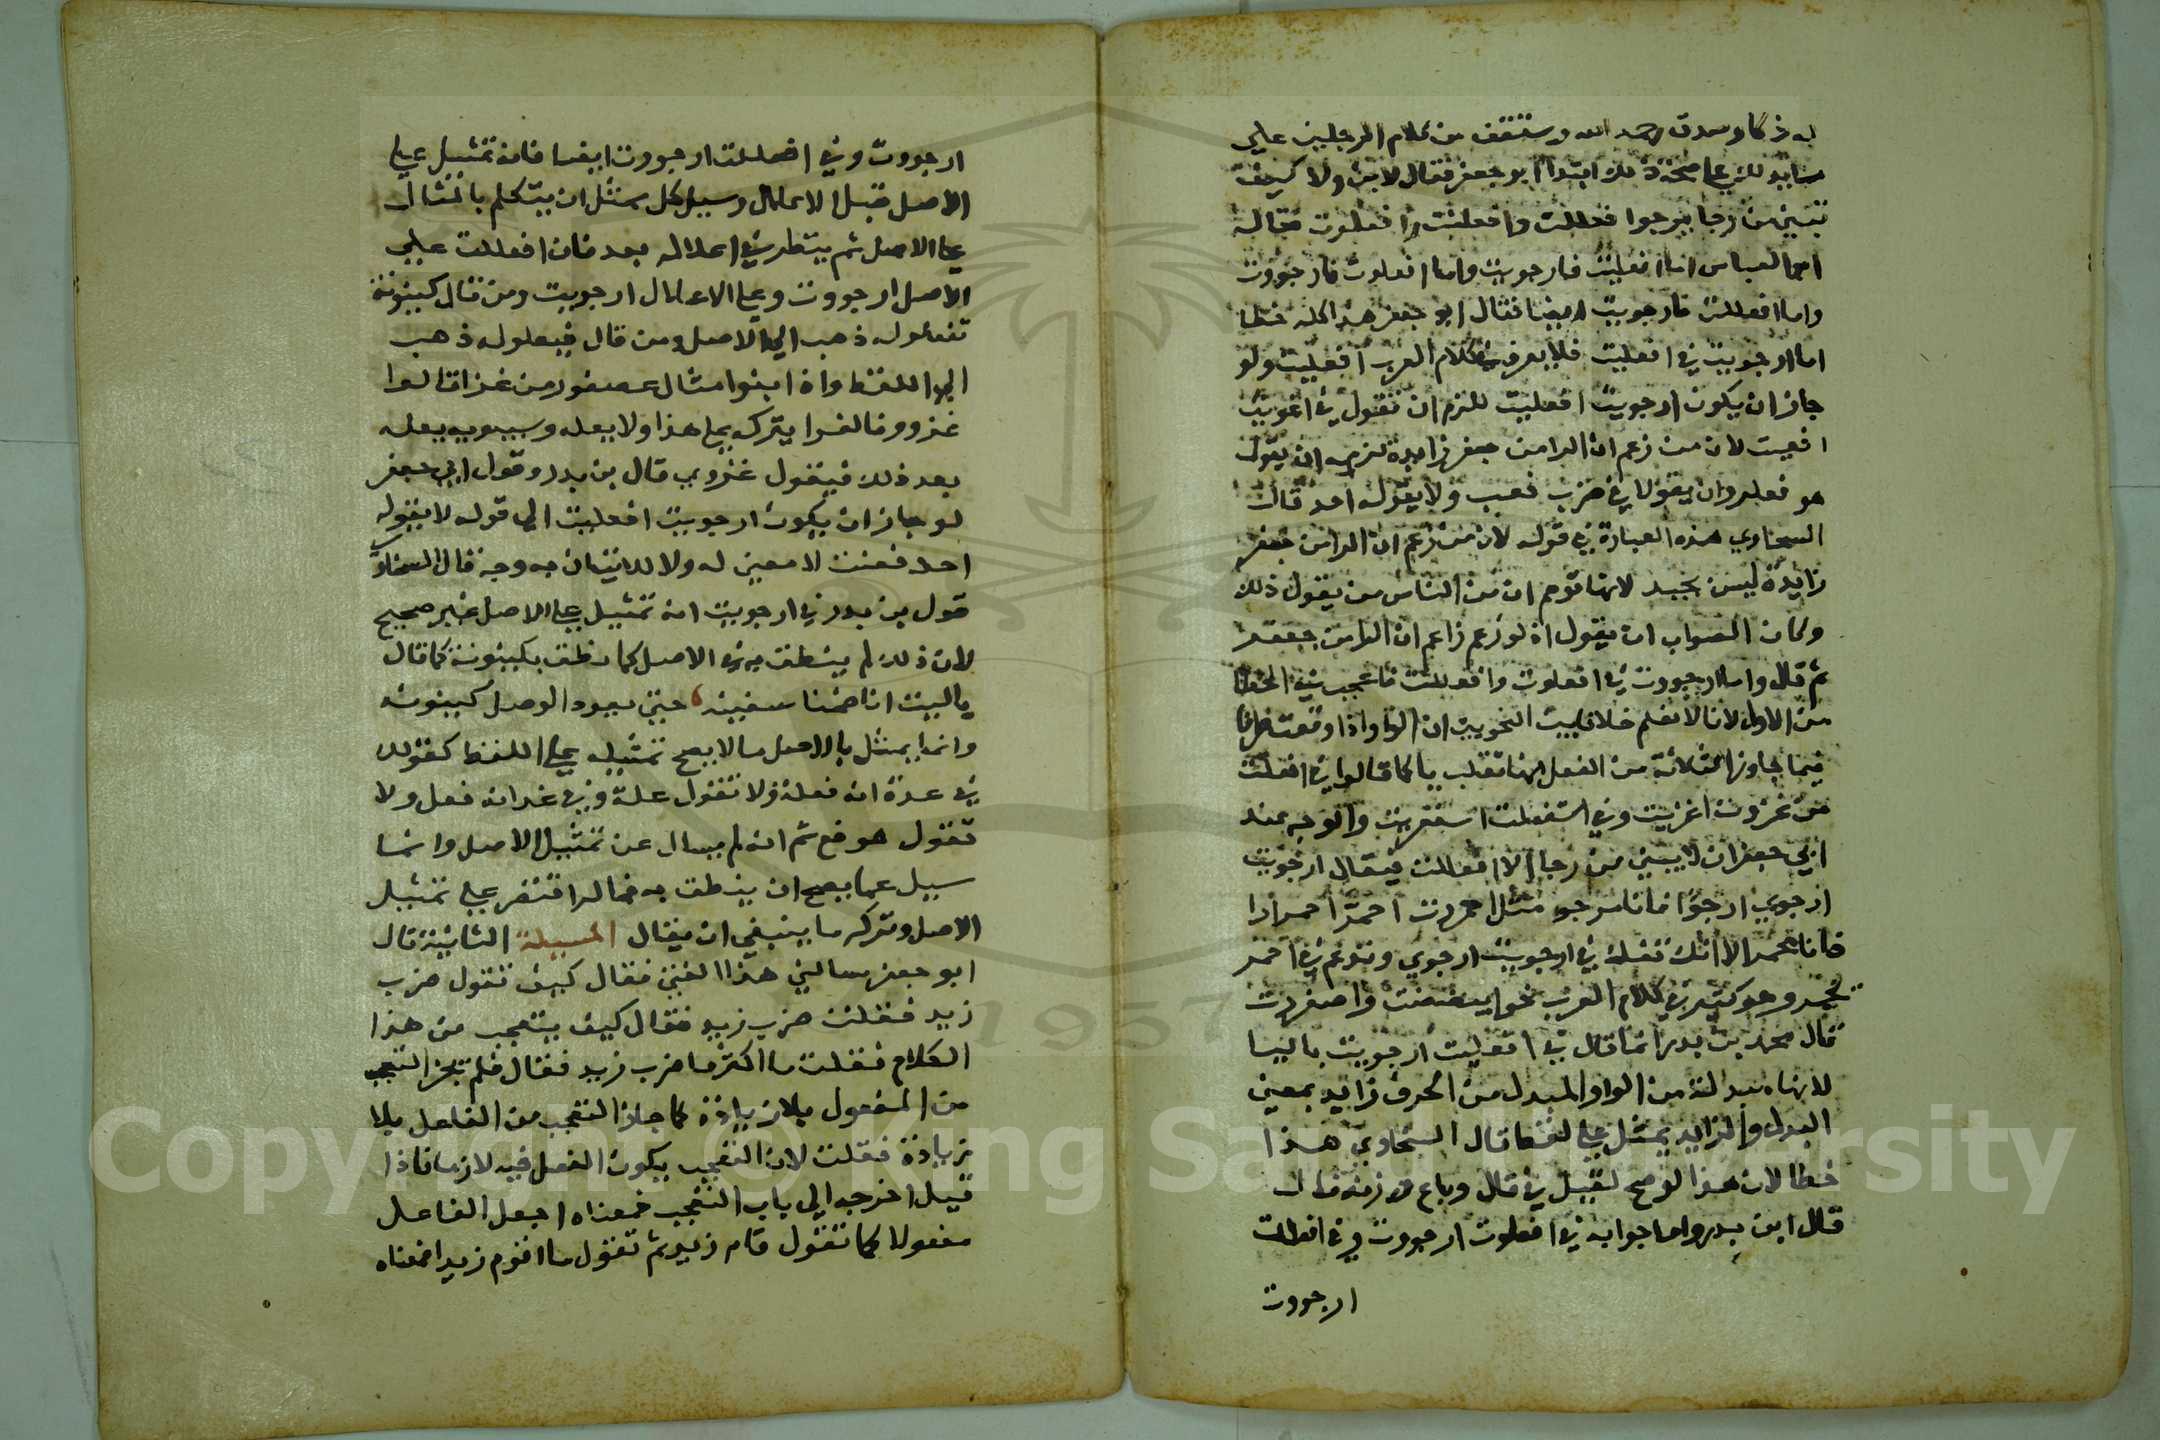 له ذكا وصدق رحمه الله وستقف من كلام الرجلين علي
ما يدلك علي صحة ذلك ابتدا ابو جعفر فقال لابن ولاد كيف
تبني من رجا يرجوا افعللت وافعليت وافعلوت فقال له
ابو العباس اما افعليت فارجويت واما افعلوت فارجووت
واما افعللت فارجويت ايضا فقال ابو جعفر هذا كله خطا
اما ارجويت في افعليت فلا يعرف في كلام العرب افعليت ولو
جاز ان يكون ارجويت افعليت للزم ان تقول في اغويت
افعيت لان من زعم ان الرا من جعفر زايدة لزمه ان يقول
هو فعلر وان يقول في ضرب فعب ولا يقوله احد قال
السخاوي هذه العبارة في قوله لان من زعم ان الرا من جعفر
زايدة ليس بجيد لانها توهم ان من الناس من يقول ذلك
وكان الصواب ان يقول اذ لو زعم زاعم ان الرا من جعفر
ثم قال واما ارجووت في افعلوت وافعللت فاعجب في الخطا
من الاول لانا لا نعلم خلافا بين النحويين ان الواو اذا وقعت طرفا
فيما يجاوز الثلاثة من الفعل انها تقلب يا كما قالوا في افعلت
من غزوت اغزيت وفي استفعلت استغزيت والوجه عند
ابي جعفر ان لا يبني من رجا الا افعللت فيقال ارجويت
ارجوي ارجوا فانا مرجو مثل احمررت احمر احمرارا
فانا محمر الا انك تقلب في ارجويت ارجوي وتدغم في احمر
يحمر وهو كثير في كلام العرب نحو ابيضضت واصفررت
قال محمد بن بدر انما قال في افعليت ارجويت باليا
لانها مبدلة من الواو والمبدل من الحرف زايد بمعني
البدل والزايد يمثل علي لفظه قال السخاوي هذا
خطا لان هذا لو صح لقيل في قال وباع وزنه فال
قال ابن بدر واما جوابه في افعلوت ارجووت وفي افعللت
ارجووت
ارجووت وفي افعللت ارجووت ايضا فانه تمثيل علي
الاصل قبل الاعلال وسبيل كل ممثل ان يتكلم بالمثال
علي الاصل ثم ينظر في اعلاله بعد فان افعللت علي
الاصل ارجووت وعلي الاعلال ارجويت ومن قال كينونة
فعلوله ذهب الي الاصل ومن قال فيعلوله ذهب
الي اللفظ واذا بنوا مثال عصفور من غزا قالوا
غزوو فالفرا يتركه علي هذا ولا يعله وسيبويه يعله
بعد ذلك فيقول غزوي قال بن بدر وقول ابي جعفر
لو جاز ان يكون ارجويت افعليت الي قوله لا يقوله
احد فعنت لا معني له ولا للاتيان به وجه قال السخاوي
قول بن بدر في ارجويت انه تمثيل علي الاصل غير صحيح
لان ذلك لم ينطق به في الاصل كما نطق بكينونة كما قال
ياليت انا ضمنا سفينه ، حتي يعود الوصل كينونه
وانما يمثل بالاصل ما لا يصح تمثيله علي اللفظ كقولك
في عدة انه فعلة ولا تقول علة وفي غد انه فعل ولا
تقول هو فع ثم انه لم يسال عن تمثيل الاصل وانما
سيل عما يصح ان ينطق به فما له اقتصر علي تمثيل
الاصل وترك ما ينبغي ان يقال المسيلة الثانية قال
ابو جعفر سالني هذا الفتي فقال كيف تقول ضرب
زيد فقلت ضرب زيد فقال كيف يتعجب من هذا
الكلام فقلت ما اكثر ما ضرب زيد فقال فلم لم يجز التعجب
من المفعول بلا زيادة كما جاز التعجب من الفاعل بلا
زيادة فقلت لان التعجب يكون الفعل فيه لازما فاذا
قيل اخرجه الي باب التعجب فمعناه اجعل الفاعل
مفعولا كما تقول قام زيد ثم تقول ما اقوم زيدا فمعناه
1957
Copyright © King Saud University